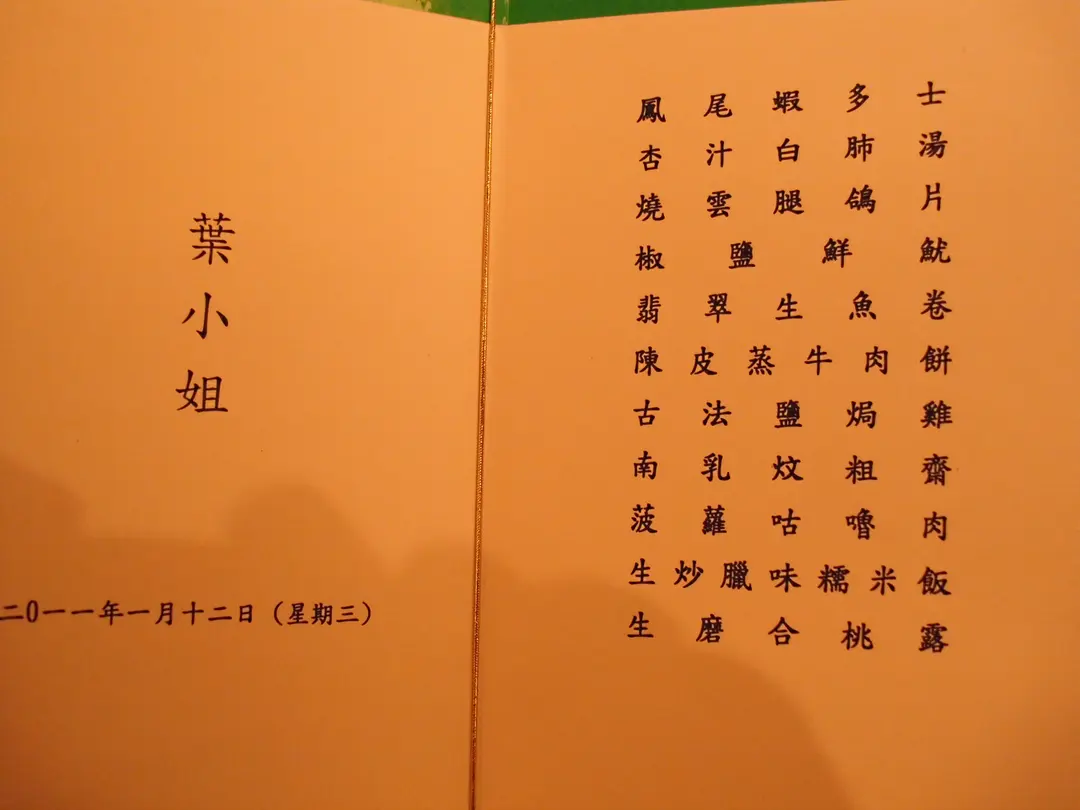 葉小姐
二0一一年一月十二日（星期三）
鳳尾蝦多士
杏汁白肺湯
燒雲腿鴿片
椒鹽鮮魷
翡翠生魚卷
陳皮蒸牛肉餅
古法鹽焗雞
南乳炆粗齋
菠蘿咕嚕肉
生炒臘味糯米飯
生磨合桃露